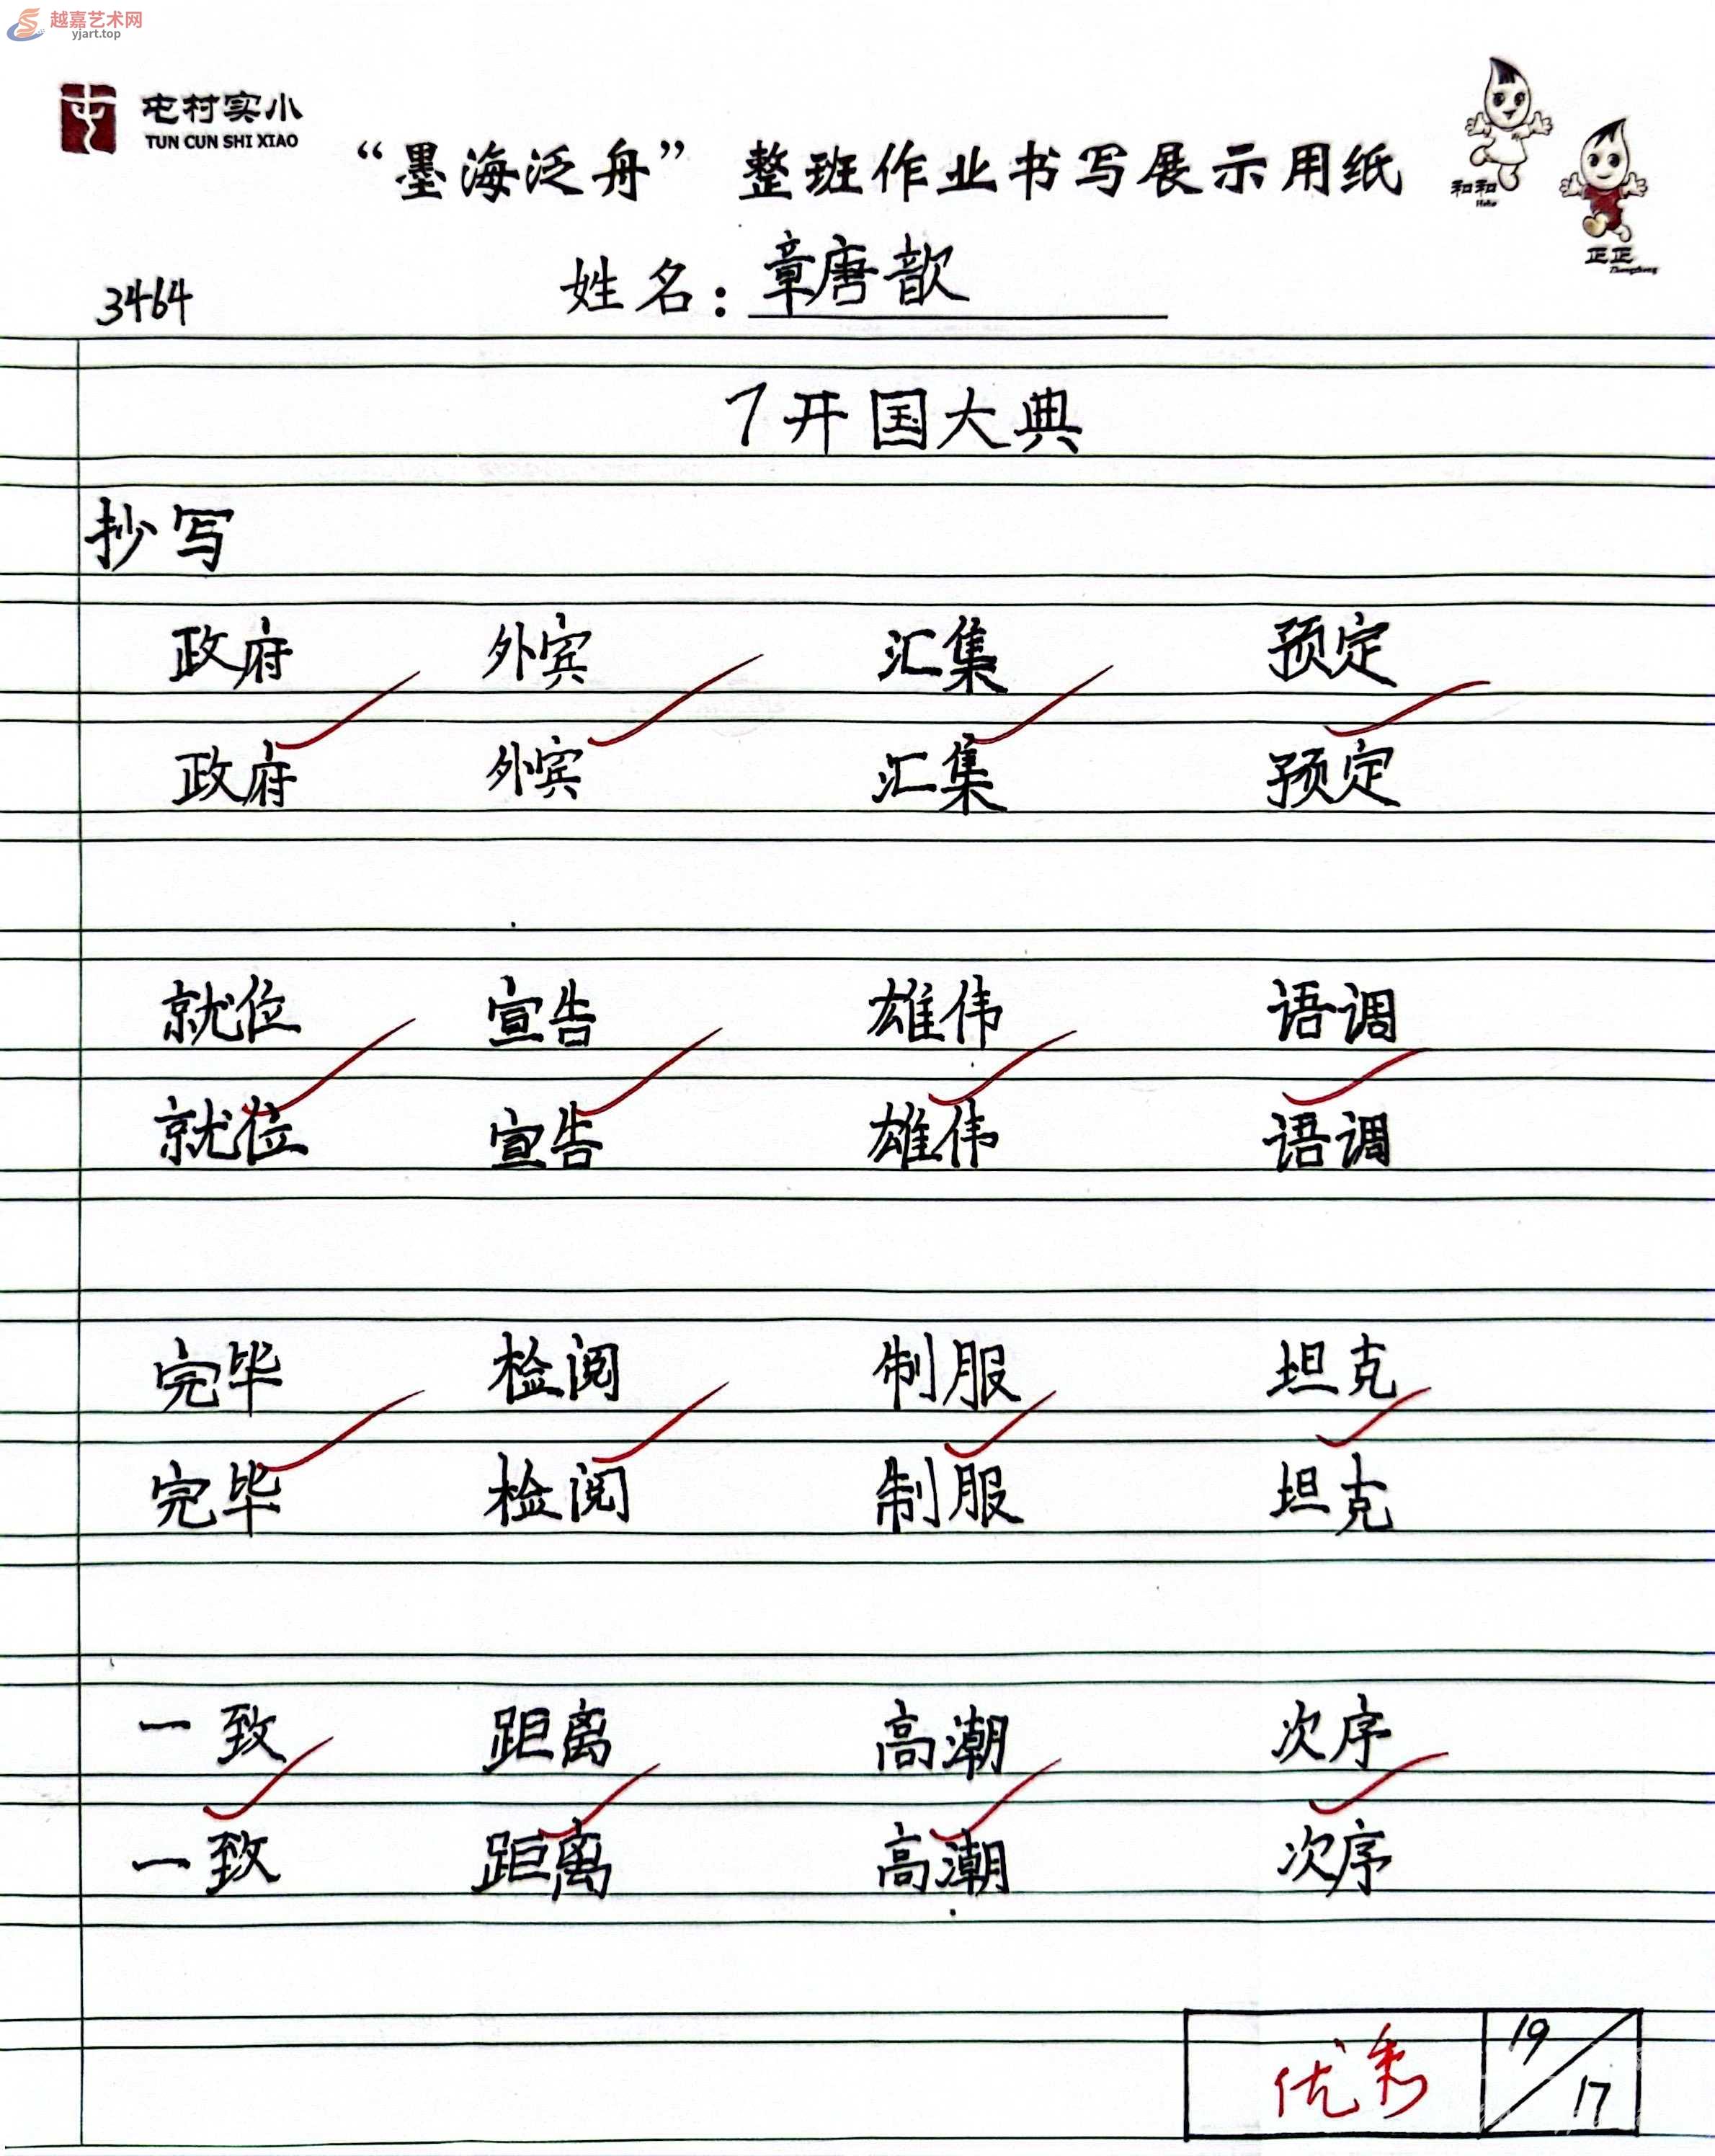 越嘉艺术网
yjart.top
屯村实小
TUN CUN SHI XIAO
“墨海泛舟” 整班作业书写展示用纸
和和
HeHe
正正
Zhengzheng
3464
姓名：章唐歆
7 开国大典
抄写
政府 外宾 汇集 预定
政府 外宾 汇集 预定
就位 宣告 雄伟 语调
就位 宣告 雄伟 语调
完毕 检阅 制服 坦克
完毕 检阅 制服 坦克
一致 距离 高潮 次序
一致 距离 高潮 次序
优秀 19/17